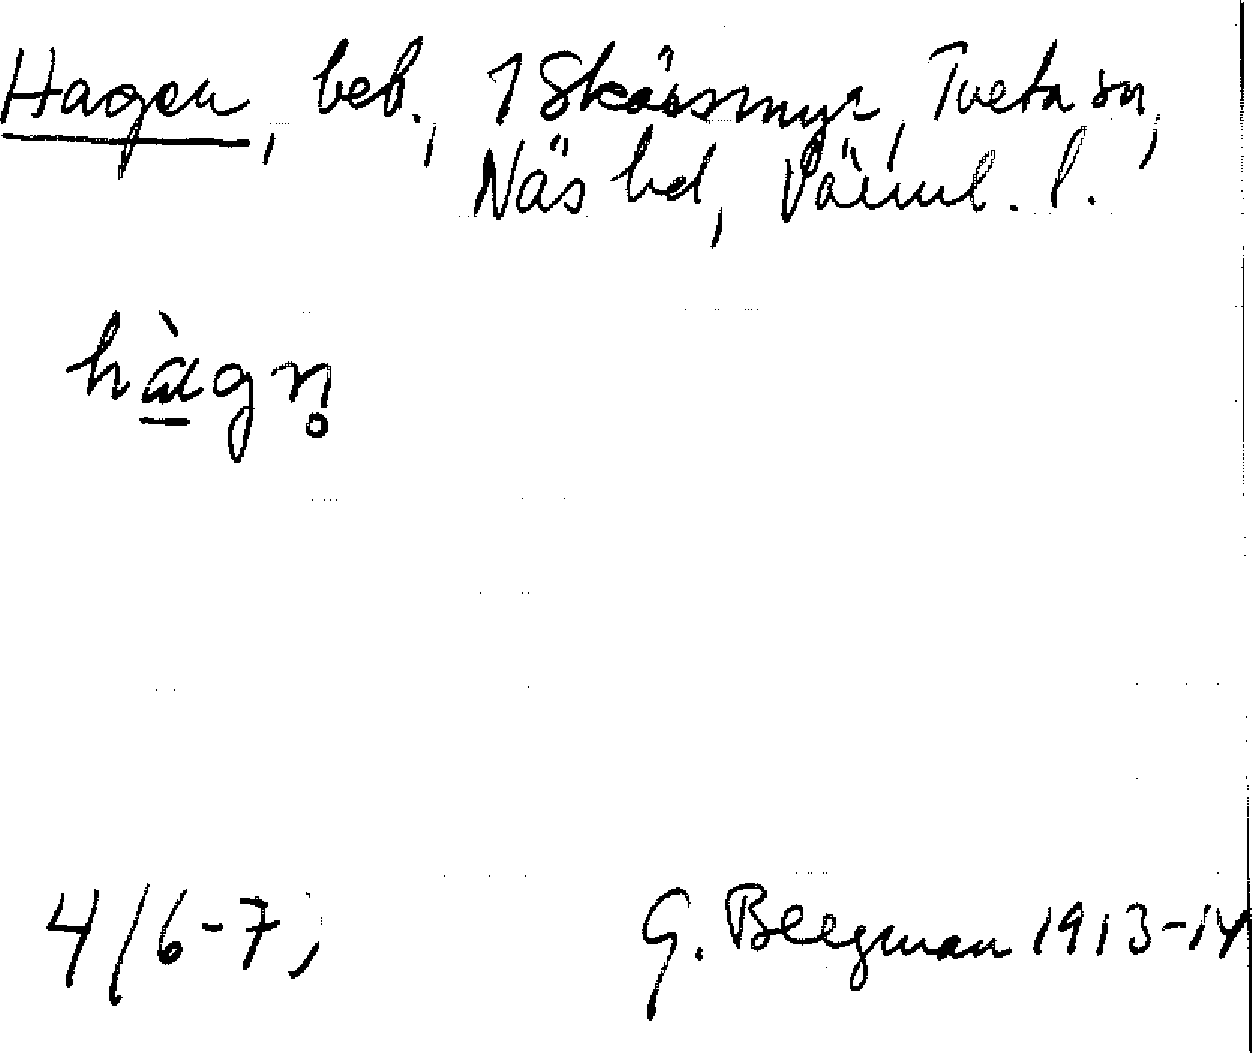 Hagen, beb., 1 Skärsmyr, Tveta sn,
Näs hd, Värml. l.
hàgn̥
4/6-7,
G. Bergman 1913-14